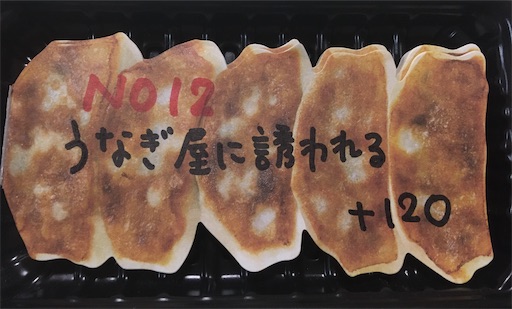 NO12
うなぎ屋に誘われる
+120